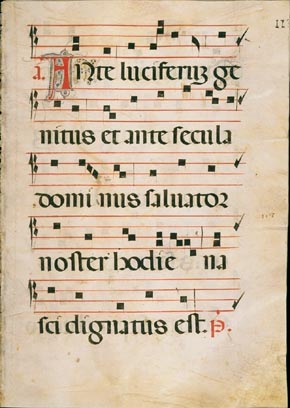 a. Ante luciferuz ge
nitus et ante secula
domi nus saluator
noster hodie na
sci dignatus est. p.